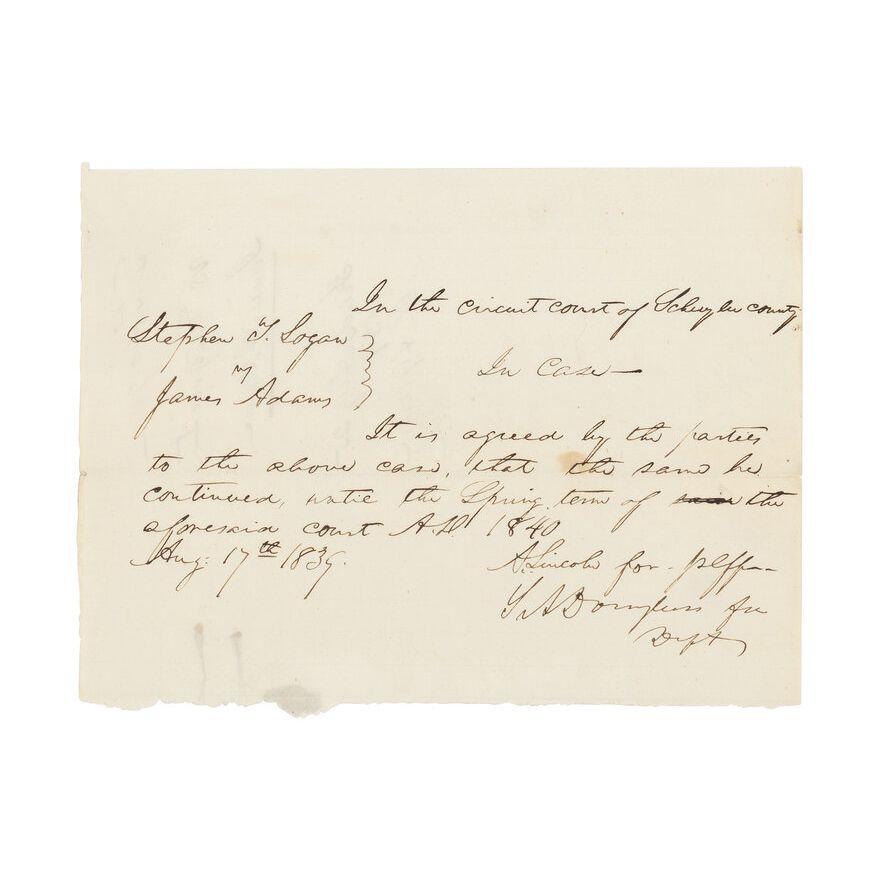 In the circuit court of Schuyler county
Stephen T. Logan
vs
In Case —
James Adams
It is agreed by the parties
to the above case, that the same be
continued, untie the Spring term of the
aforesaid court A.D. 1840
Aug: 17th 1839.
A. Lincoln for - plff -
S A Douglass for
Deft